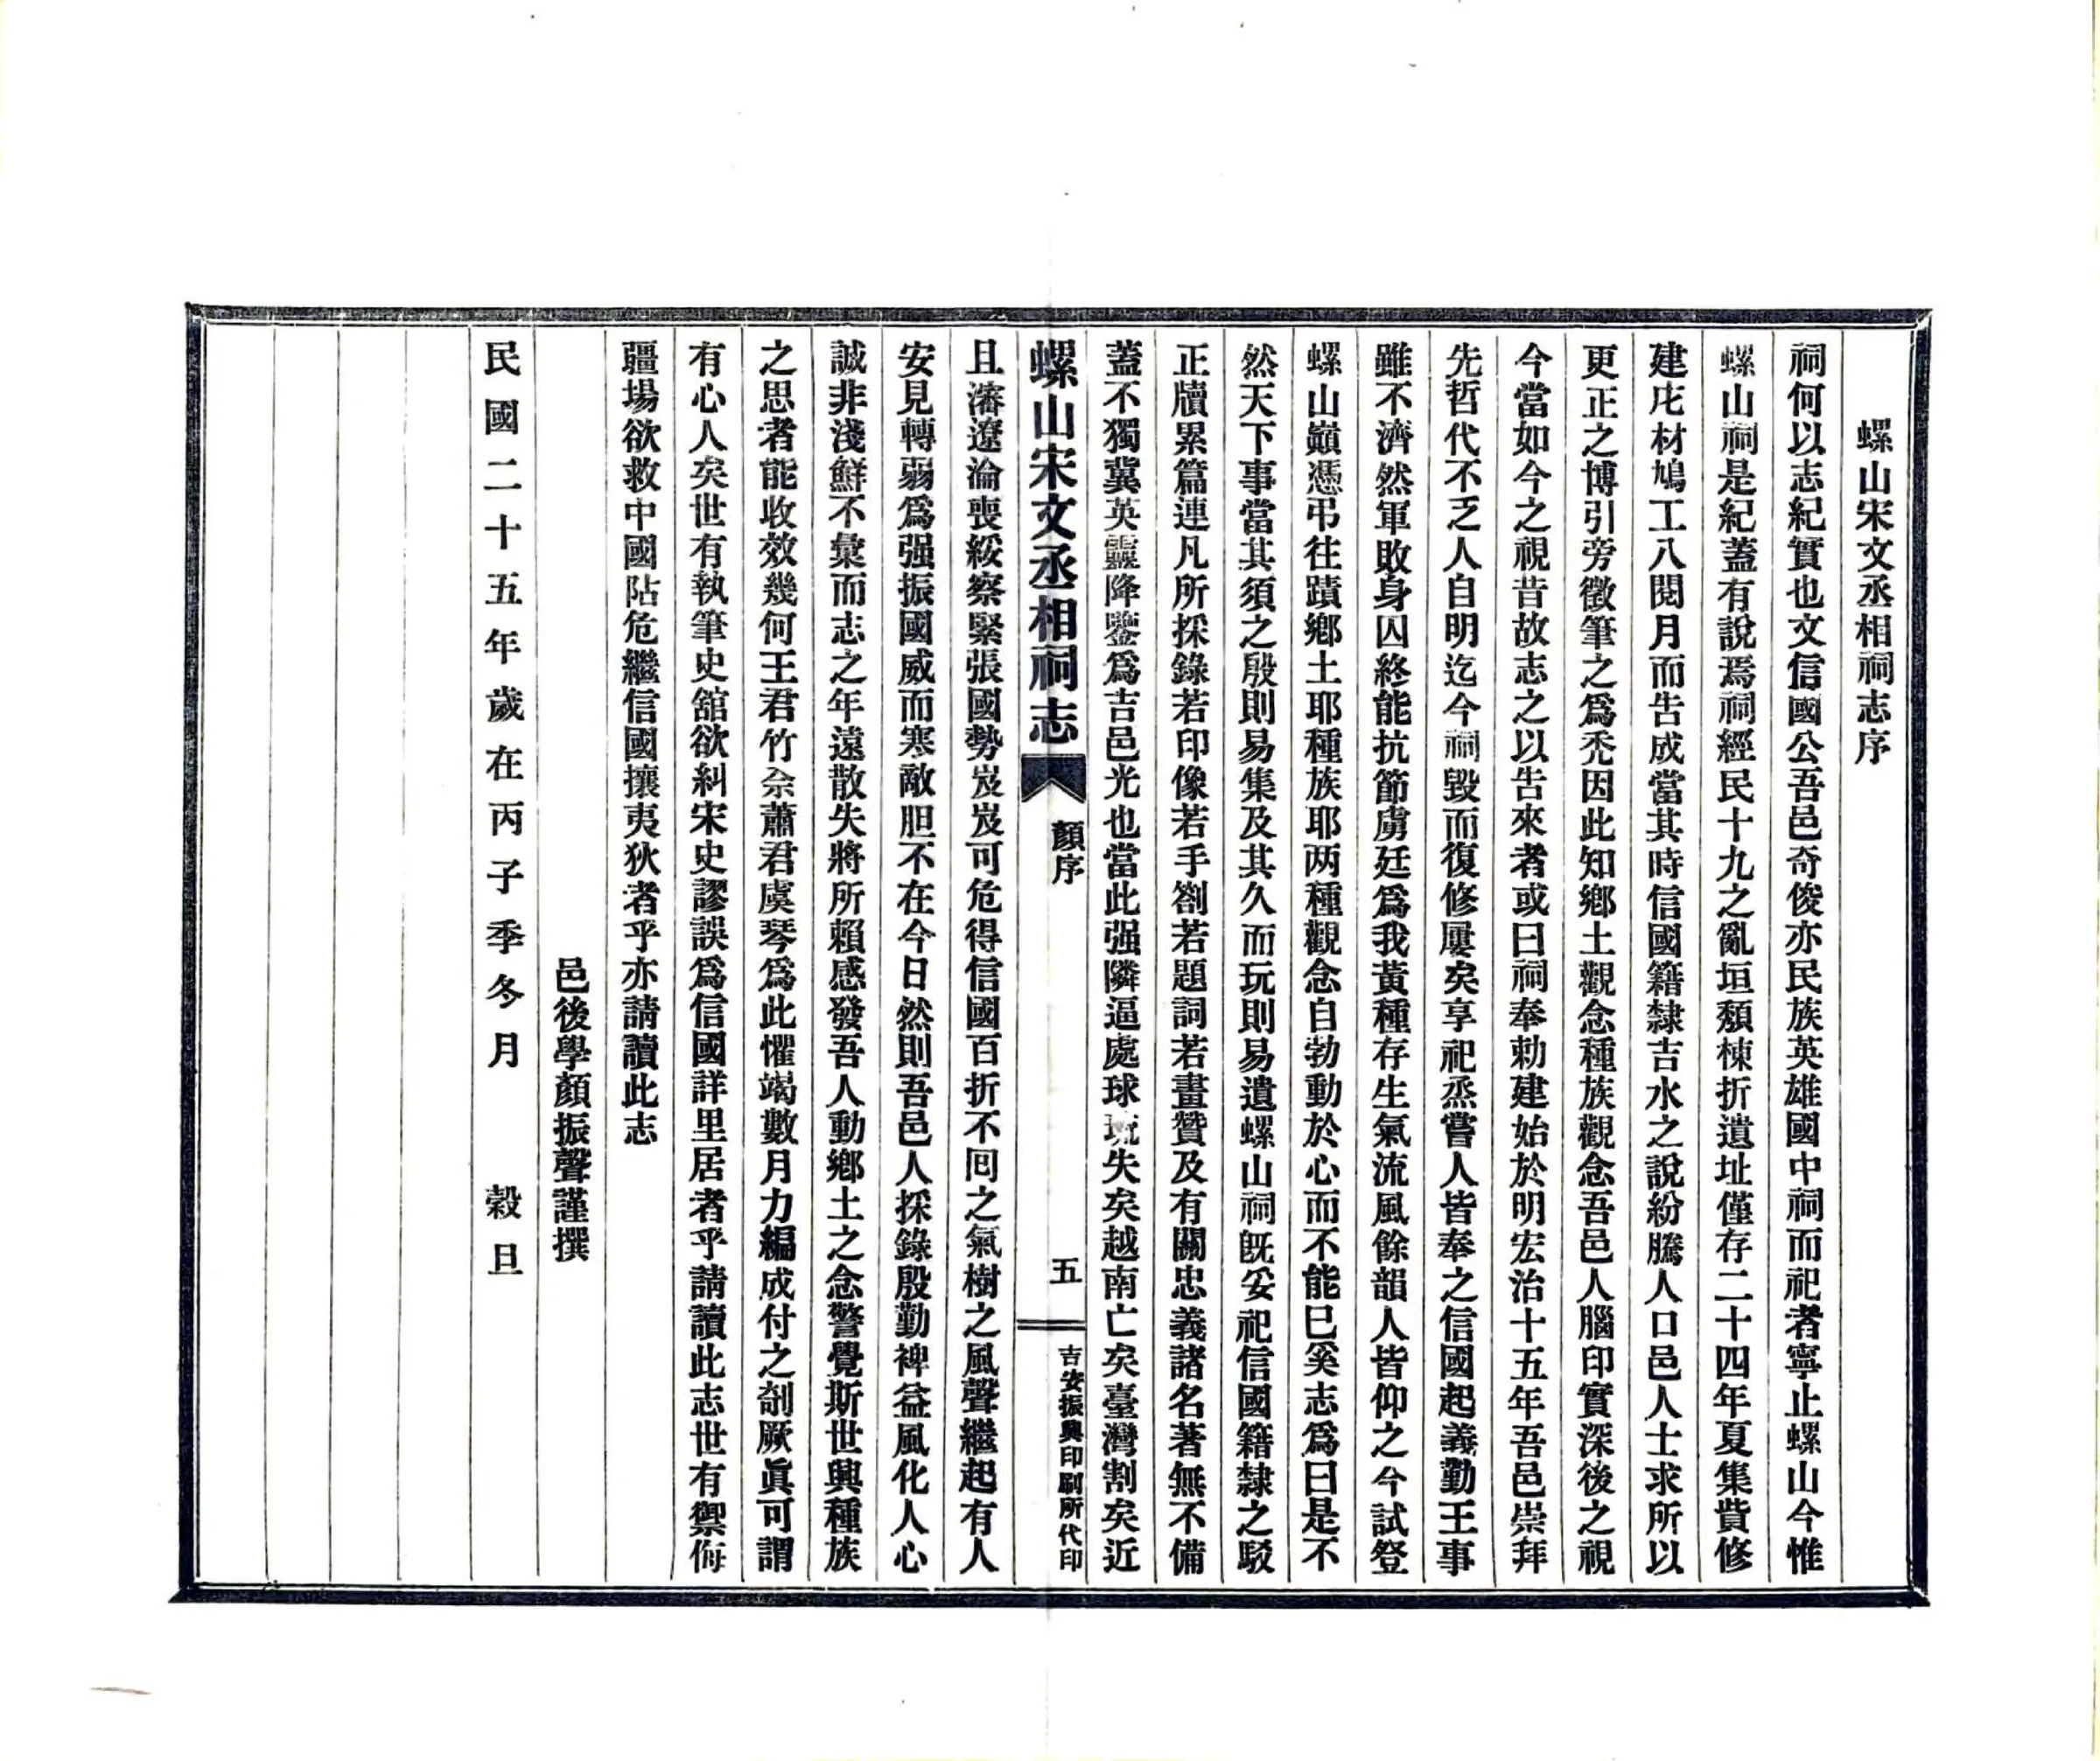 螺山宋文丞相祠志序
祠何以志紀實也文信國公吾邑奇俊亦民族英雄國中祠而祀者寧止螺山今惟
螺山祠是紀蓋有說焉祠經民十九之亂垣頽棟折遺址僅存二十四年夏集貲修
建庀材鳩工八閱月而告成當其時信國籍隸吉水之說紛騰人口邑人士求所以
更正之博引旁徵筆之爲禿因此知鄉土觀念種族觀念吾邑人腦印實深後之視
今當如今之視昔故志之以告來者或曰祠奉勅建始於明宏治十五年吾邑崇拜
先哲代不乏人自明迄今祠毀而復修屢矣享祀烝嘗人皆奉之信國起義勤王事
雖不濟然軍敗身囚終能抗節虜廷爲我黃種存生氣流風餘韻人皆仰之今試登
螺山巔憑弔往蹟鄉土耶種族耶两種觀念自勃動於心而不能已奚志爲曰是不
然天下事當其須之殷則易集及其久而玩則易遺螺山祠旣妥祀信國籍隸之駁
正牘累篇連凡所採錄若印像若手劄若題詞若畫贊及有關忠義諸名著無不備
蓋不獨冀英靈降鑒爲吉邑光也當此强隣逼處球琉失矣越南亡矣臺灣割矣近
螺山宋文丞相祠志
顏序
五
吉安振興印刷所代印
且瀋遼淪喪綏察緊張國勢岌岌可危得信國百折不囘之氣樹之風聲繼起有人
安見轉弱爲强振國威而寒敵胆不在今日然則吾邑人採錄殷勤裨益風化人心
誠非淺鮮不彙而志之年遠散失將所賴感發吾人動鄉土之念警覺斯世興種族
之思者能收效幾何王君竹余蕭君虞琴爲此懼竭數月力編成付之剞厥眞可謂
有心人矣世有執筆史舘欲糾宋史謬誤爲信國詳里居者乎請讀此志世有禦侮
疆場欲救中國阽危繼信國攘夷狄者乎亦請讀此志
邑後學顏振聲謹撰
民國二十五年歲在丙子季冬月 穀旦